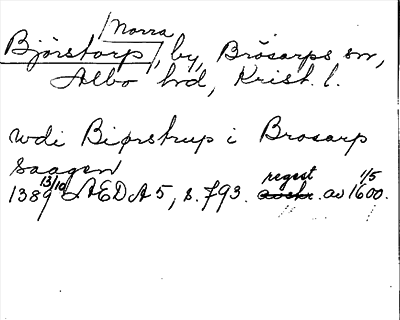 Norra
Björstorp, by, Brösarps sn,
Albo hd, Krist. l.
udi Biørstrup i Brosarp
saagen
1389 13/10 ÆDA 5, s. 793. regest av 1/5 1600.